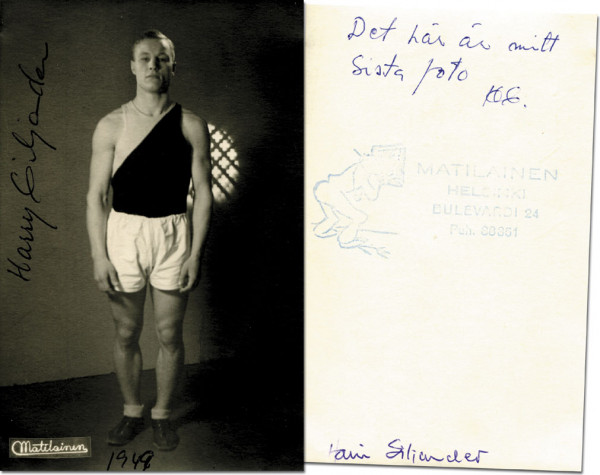 Harry Siljander
Matilainen
1948
Det här är mitt
sista foto
H.S.
MATILAINEN
HELSINKI
BULEVARDI 24
Puh. 68661
Harri Siljander